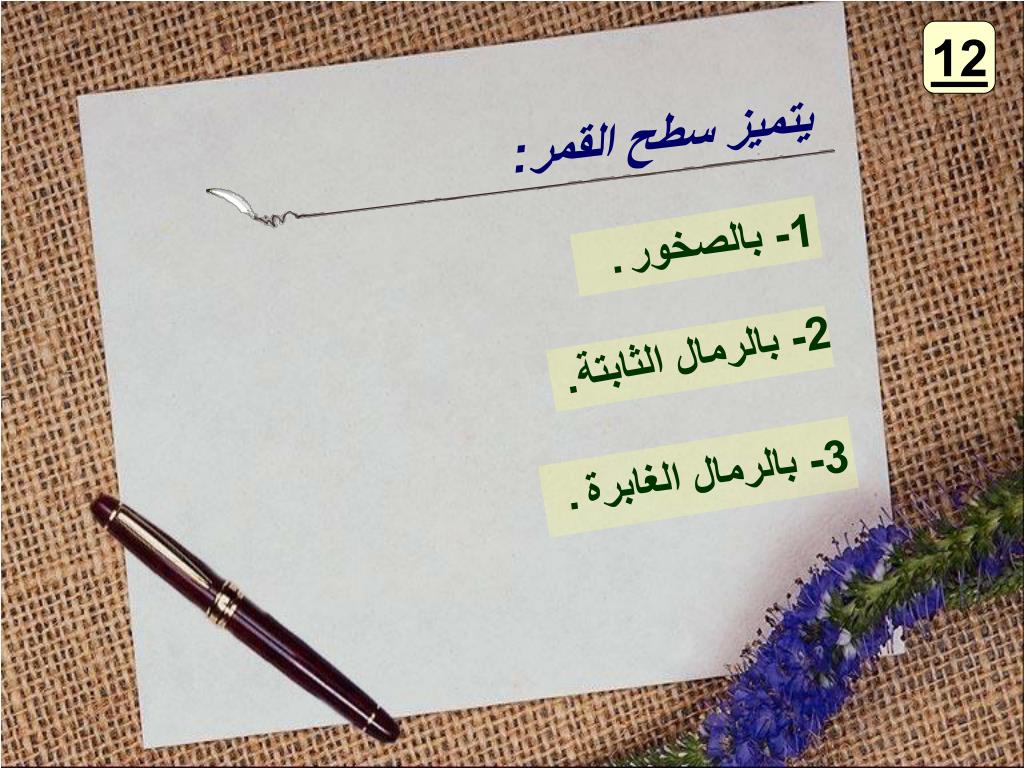 12
يتميز سطح القمر:
1- بالصخور .
2- بالرمال الثابتة.
3- بالرمال الغابرة .